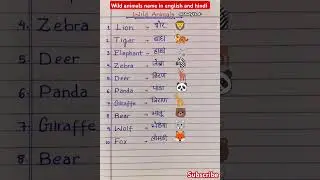 Wild animals name in english and hindi
Wild Animals
1. Lion - शेर
2. Tiger -
3. Elephant - हाथी
4. Zebra -
5. Deer - हिरण
6. Panda - पांडा
7. Giraffe -
8. Bear - भालू
9. Wolf - भेड़िया
10. Fox - लोमड़ी
Subscribe
4. Zebra
5. Deer
6. Panda
7. Giraffe
8. Bear